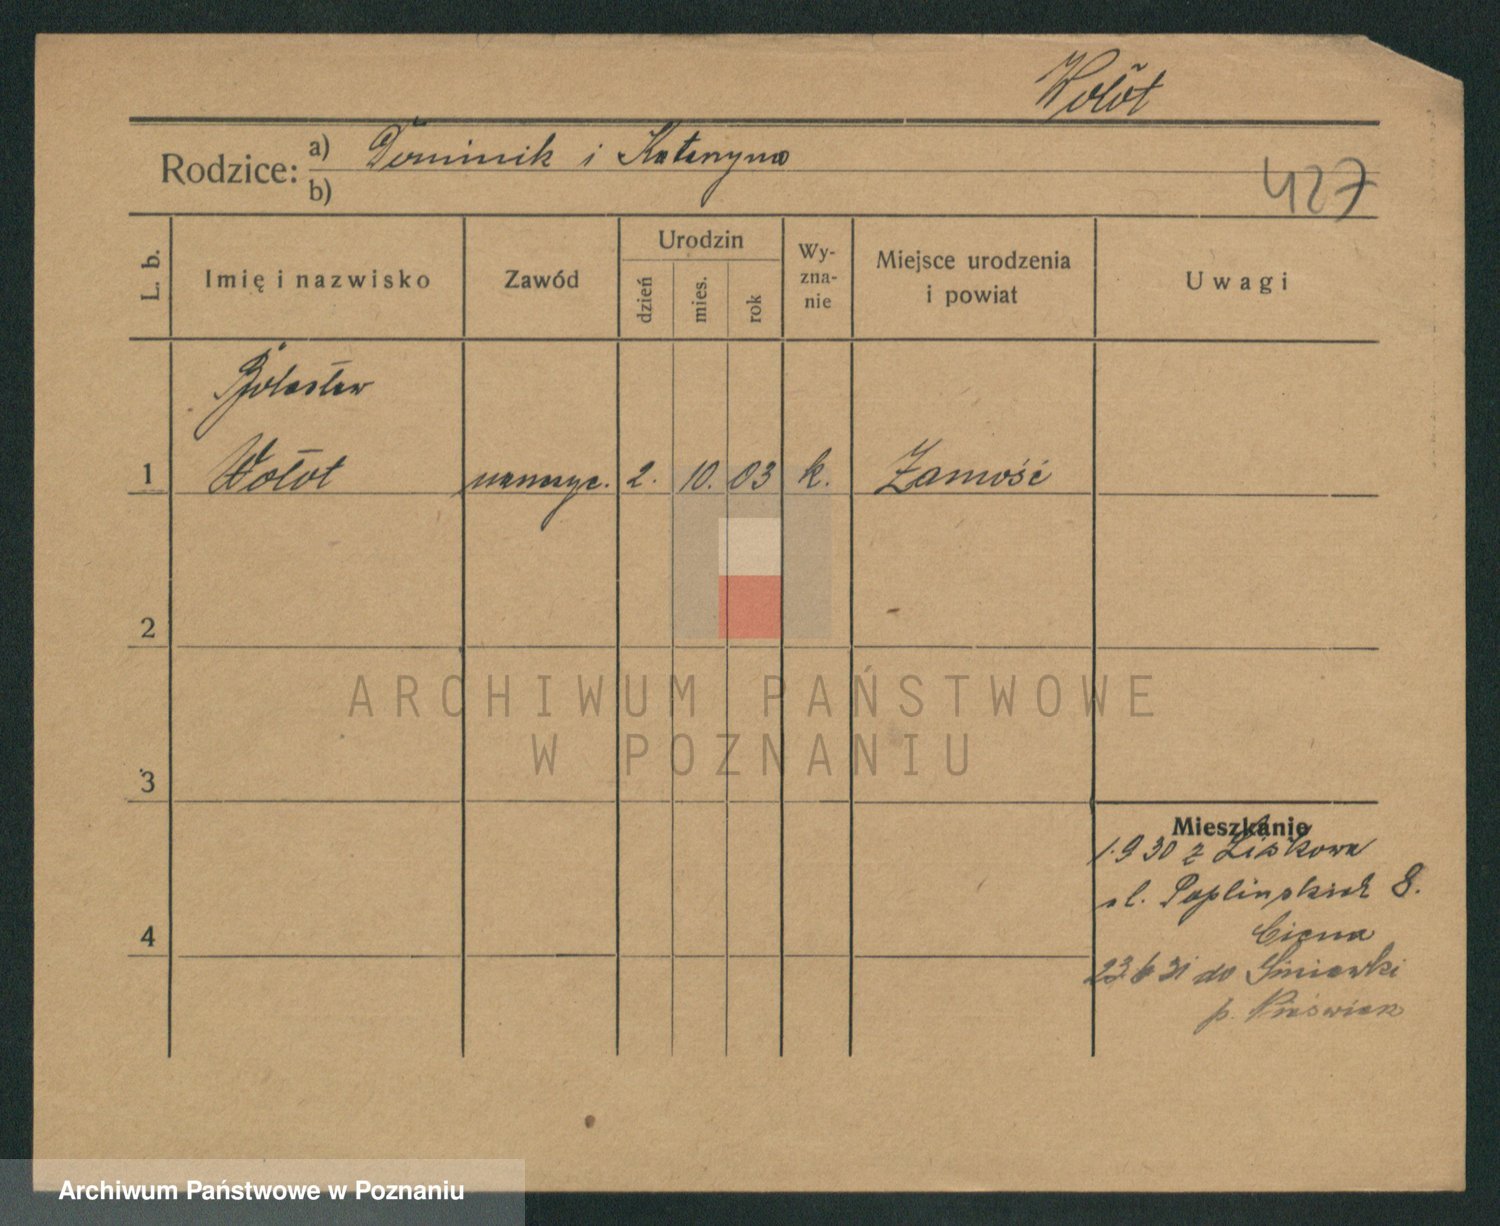 Wołot
Rodzice: a) Dominik i Katarzyna
b)
427
L. b.
Imię i nazwisko
Zawód
Urodzin
dzień
mies.
rok
Wy-
zna-
nie
Miejsce urodzenia
i powiat
Uwagi
Bolesław
1 Wołot nauczyc. 2. 10. 03 k. Zamość
2
3
4
Mieszkanie
1.9 30 z Liskowa
ul. Poplińskich 8.
23.6 31 do
p. Nieśwież
ARCHIWUM PAŃSTWOWE
W POZNANIU
Archiwum Państwowe w Poznaniu